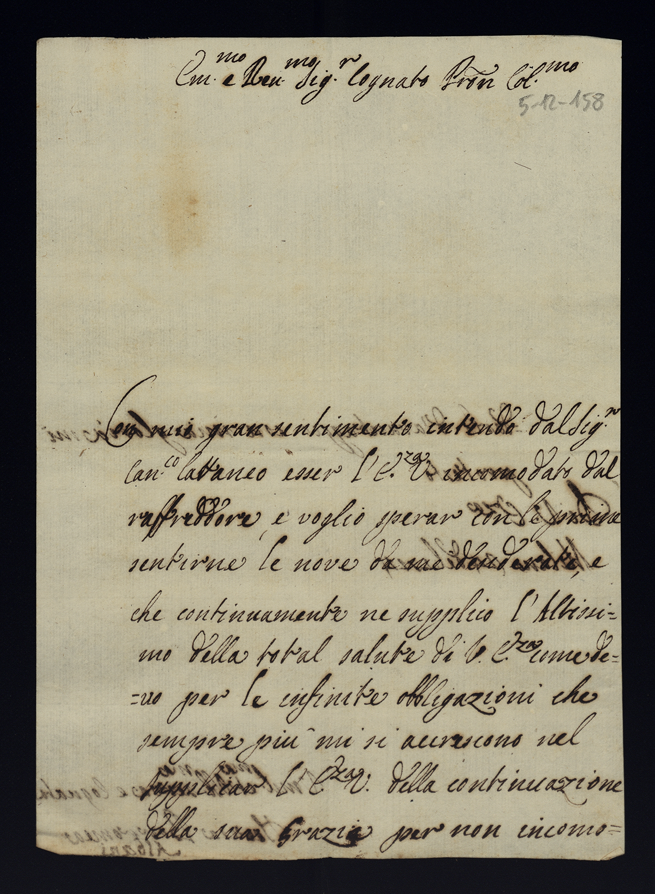 Em.mo e Reu.mo Sig.r Cognato Pron Col.mo
5-12-158
Con mio gran sentimento intendo dal Sig.r
Can.co Cattaneo esser l'E.za V. incomodato dal
raffreddore, e voglio sperar con le prime
sentirne le nove da me desiderate, e
che continuamente ne supplico l'Altissi=
mo della total salute di V. E.za come de=
=uo per le infinite obbligazioni che
sempre più mi si accrescono nel
supplicar l'E.za V. della continuazione
della sua Grazia per non incomo=